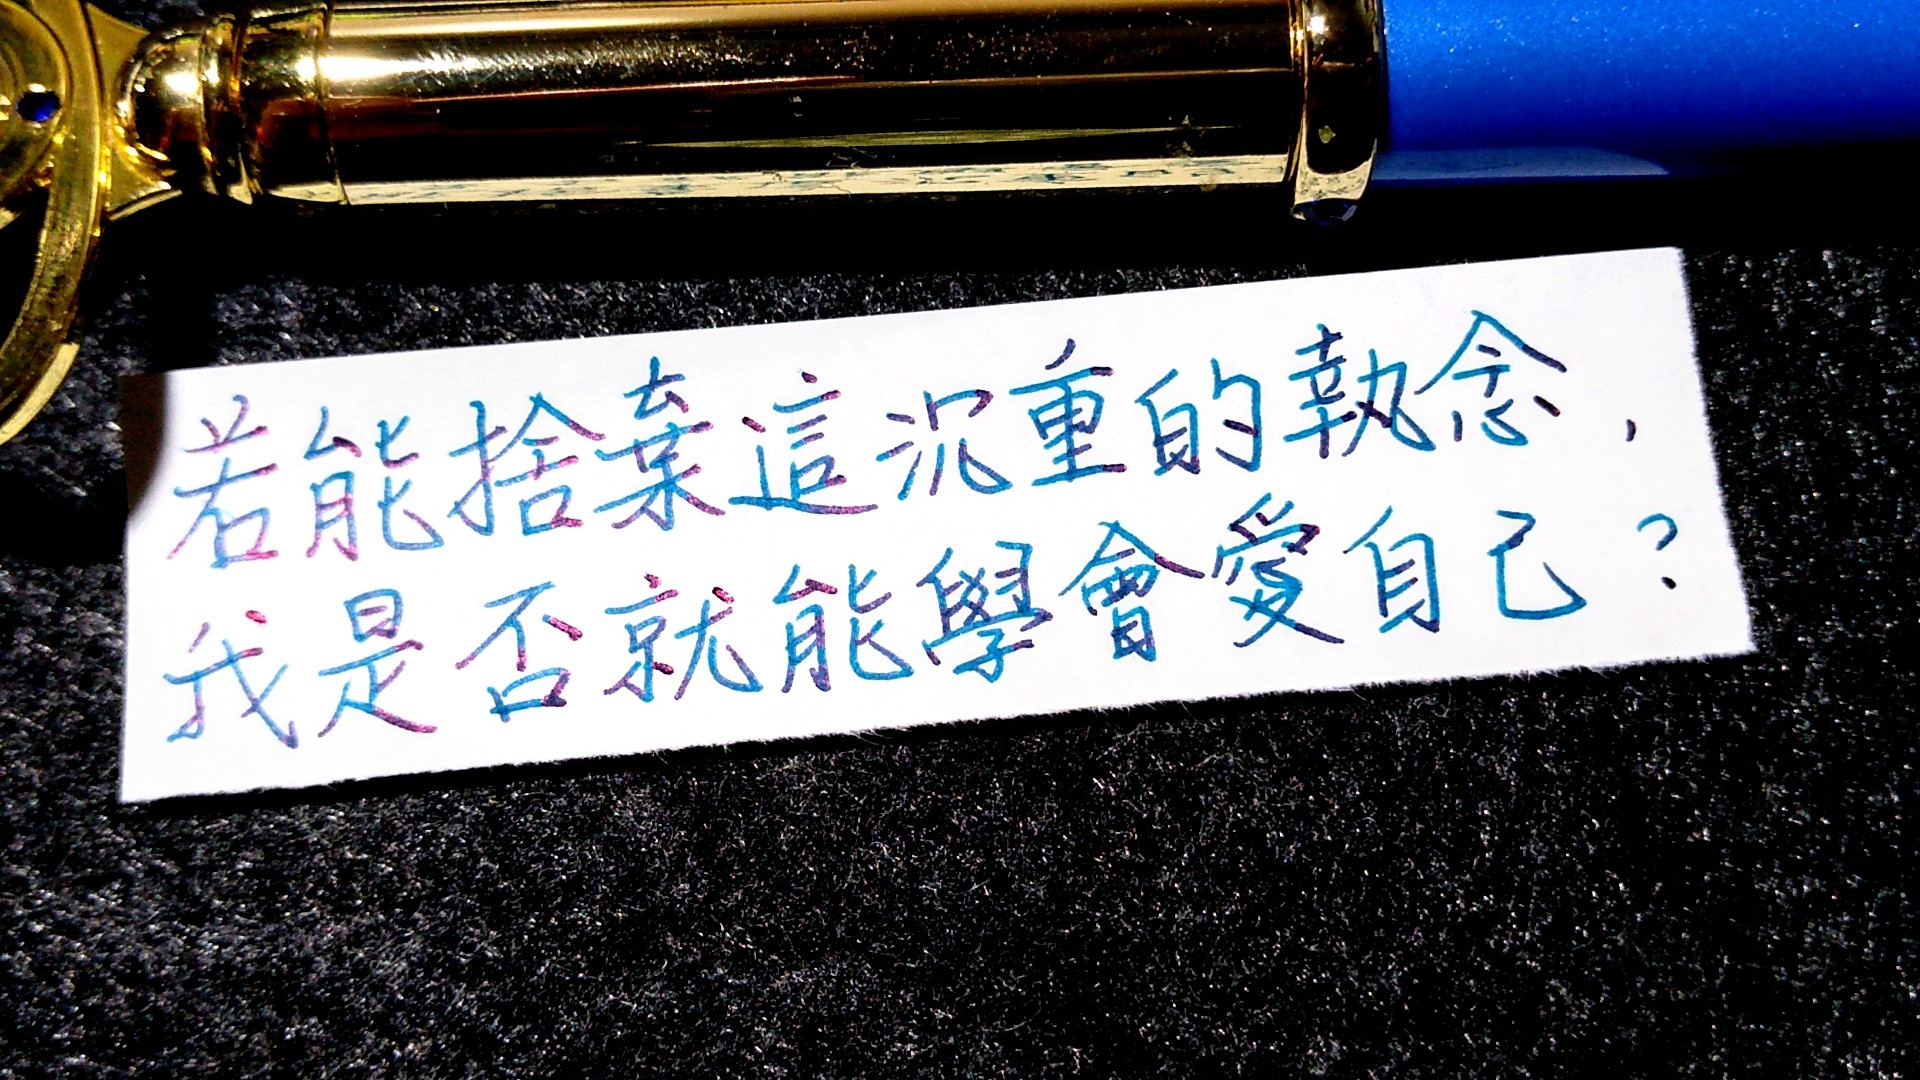 若能捨棄這沉重的執念，
我是否就能學會愛自己？